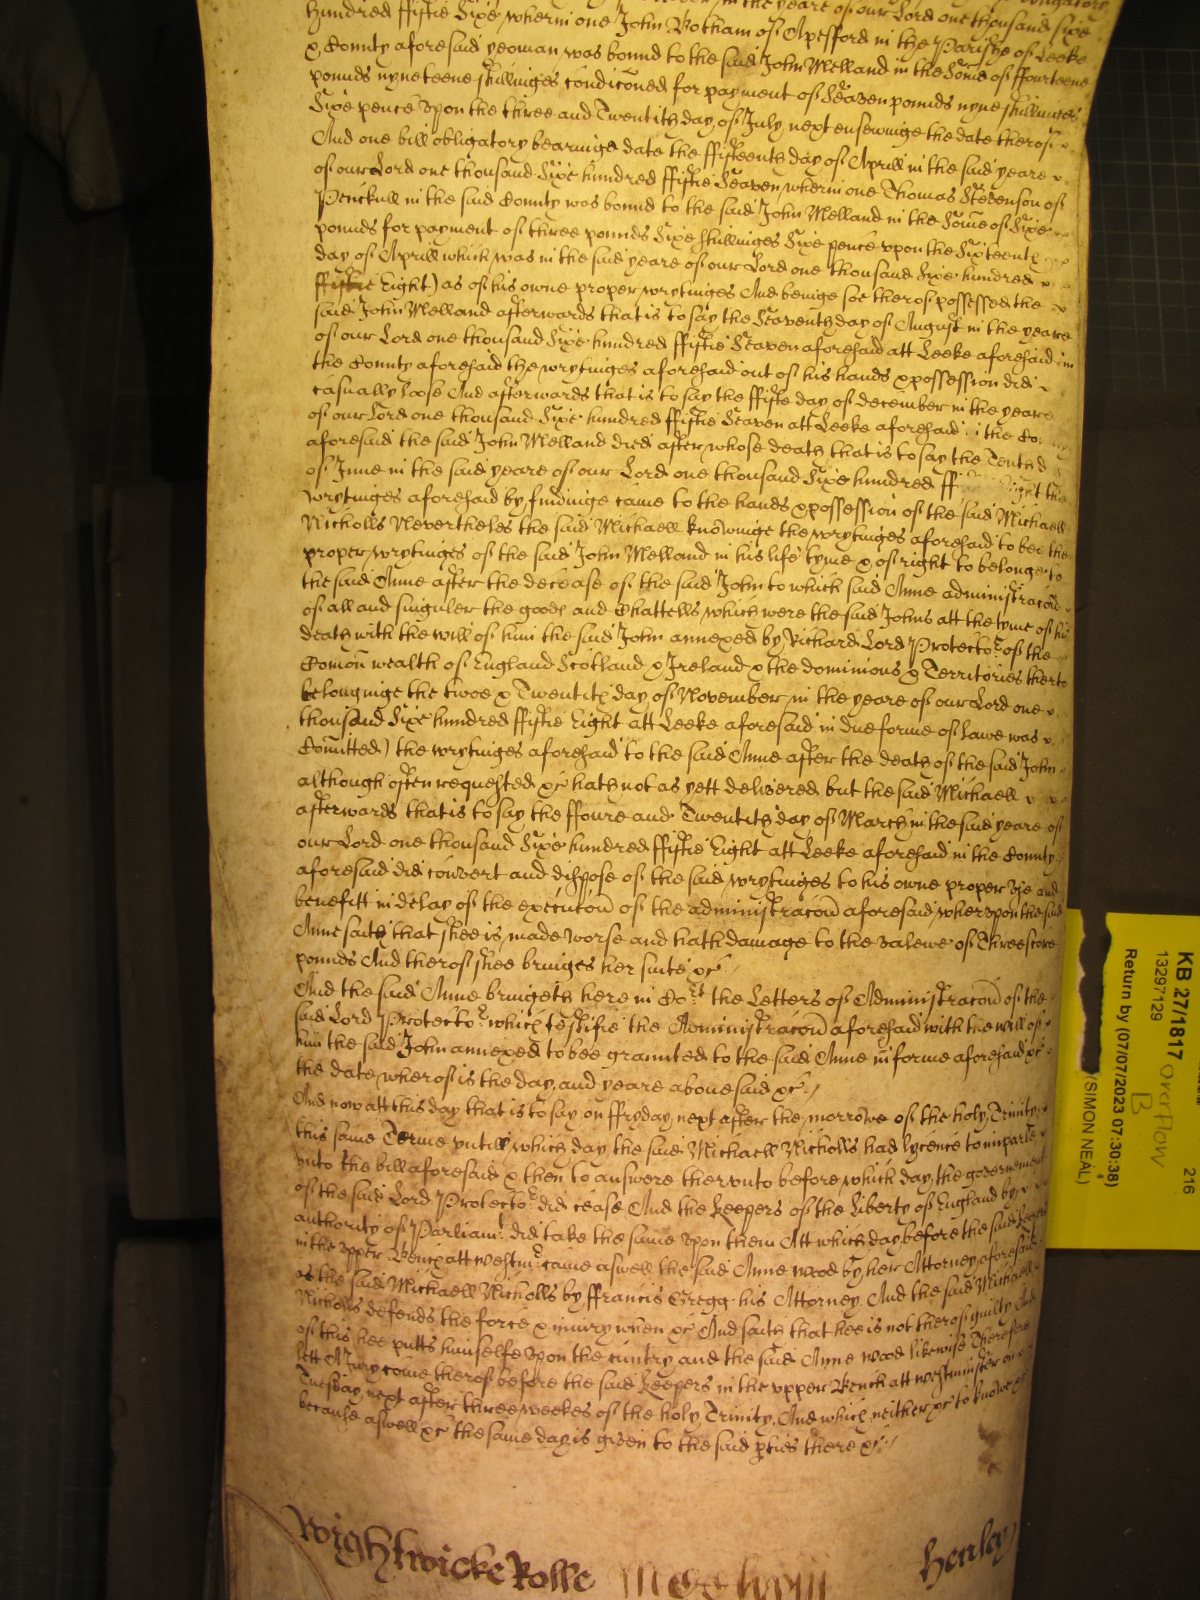 in the yeare of our Lord one thousand sixe
hundred ffiftie Sixe wherin one John Botham of Apesford in the Parishe of Leeke
& County aforesaid yeoman was bound to the said John Melland in the Some of ffourteene
pounds nyneteene shillinges condiconed for payment of Seaven pounds nyne shillinges
Sixe pence upon the three and Twentith day of July next ensewinge the date therof
And one bill obligatory bearinge date the ffifteenth day of Aprill in the said yeare
of our Lord one thousand Sixe hundred ffiftie Seaven wherin one Thomas Stevenson of
in the said County was bound to the said John Melland in the Some of Sixe
pounds for payment of three pounds Sixe shillinges Sixe pence upon the Sixteenth
day of Aprill which was in the said yeare of our Lord one thousand Sixe hundred
ffiftie Eight) as of his owne proper wrytinges And beinge soe therof possessed the
said John Melland afterwards that is to say the Seaventh day of August in the yeare
of our Lord one thousand Sixe hundred ffiftie Seaven aforesaid att Leeke aforesaid in
the County aforesaid the wrytinges aforesaid out of his hands & possession did
casually loose And afterwards that is to say the ffifte day of december in the yeare
of our Lord one thousand Sixe hundred ffiftie Seaven att Leeke aforesaid i the Co
aforesaid the said John Melland died after whose death that is to say the Tenth d
of June in the said yeare of our Lord one thousand Sixe hundred ff ight the
wrytinges aforesaid by findinge came to the hands & possession of the said Michaell
Nicholls Neverthelės the said Michaell knowinge the wrytinges aforesaid to bee the
proper wrytinges of the said John Melland in his life tyme & of right to belonge to
the said Anne after the decease of the said John to which said Anne administracon
of all and singuler the goods and Chattells which were the said Johns att the tyme of his
death with the will of him the said John annexed by Richard Lord Protector of the
Comon wealth of England Scotland & Ireland & the dominions & Territories therto
belonginge the twoe & Twentith day of November in the yeare of our Lord one
thousand Sixe hundred ffiftie Eight att Leeke aforesaid in due forme of Lawe was
Comitted) the wrytinges aforesaid to the said Anne after the death of the said John
although often requested &c hath not as yett delivered but the said Michaell
afterwards that is to say the ffoure and Twentith day of March in the said yeare of
our Lord one thousand Sixe hundred ffiftie Eight att Leeke aforesaid in the County
aforesaid did convert and dispose of the said wrytinges to his owne proper use and
benefitt in delay of the execucon of the administracon aforesaid wherupon the said
Anne saith that shee is made worse and hath damage to the valewe of Threescore
pounds And therof shee bringes her suite &c
And the said Anne bringeth here in Cort the Letters of Administracon of the
said Lord Protector which testifie the Administracon aforesaid with the will of
him the said John annexed to bee graunted to the said Anne in forme aforesaid &c
the date wherof is the day and yeare abovesaid &c
And now att this day that is to say on ffryday next after the morrowe of the holy Trinity
this same Terme untill which day the said Michaell Nicholls had lycence to imparle
unto the bill aforesaid & then to answere therunto before which day the governement
of the said Lord Protector did cease And the Keepers of the Liberty of England by
authority of Parliamt did take the same upon them Att which day before the said Keepers
in the upper Bench att westmr came aswell the said Anne wood by her Attorney aforesaid
as the said Michaell Nicholls by ffrancis Gregg his Attorney And the said Michaell
Nicholls defends the force & iniury when &c And saith that hee is not therof guilty And
of this hee putts himselfe upon the cuntry and the said Anne wood likewise Therefore
lett A Jury come therof before the said Keepers in the upper Bench att westminster on
Tuesday next after three weekes of the holy Trinity And which neither &c to knowe &c
because aswell &c the same day is given to the said pties there &c
Wightwicke Rolle
Henley
KB 27/1817
13297129
overflow
B
216
Return by (07/07/2023 07:30:38)
(SIMON NEAL)